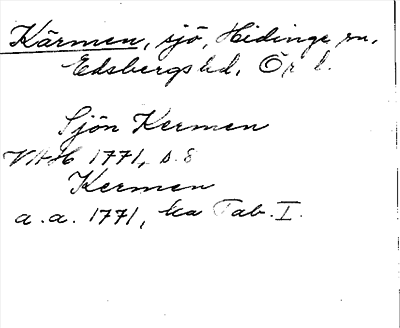 Kärmen, sjö, Hidinge sn,
Edsbergs hd, Ör l.
Sjön Kermen
VAH 1771, s. 8
Kermen
a.a. 1771, Tab. I.